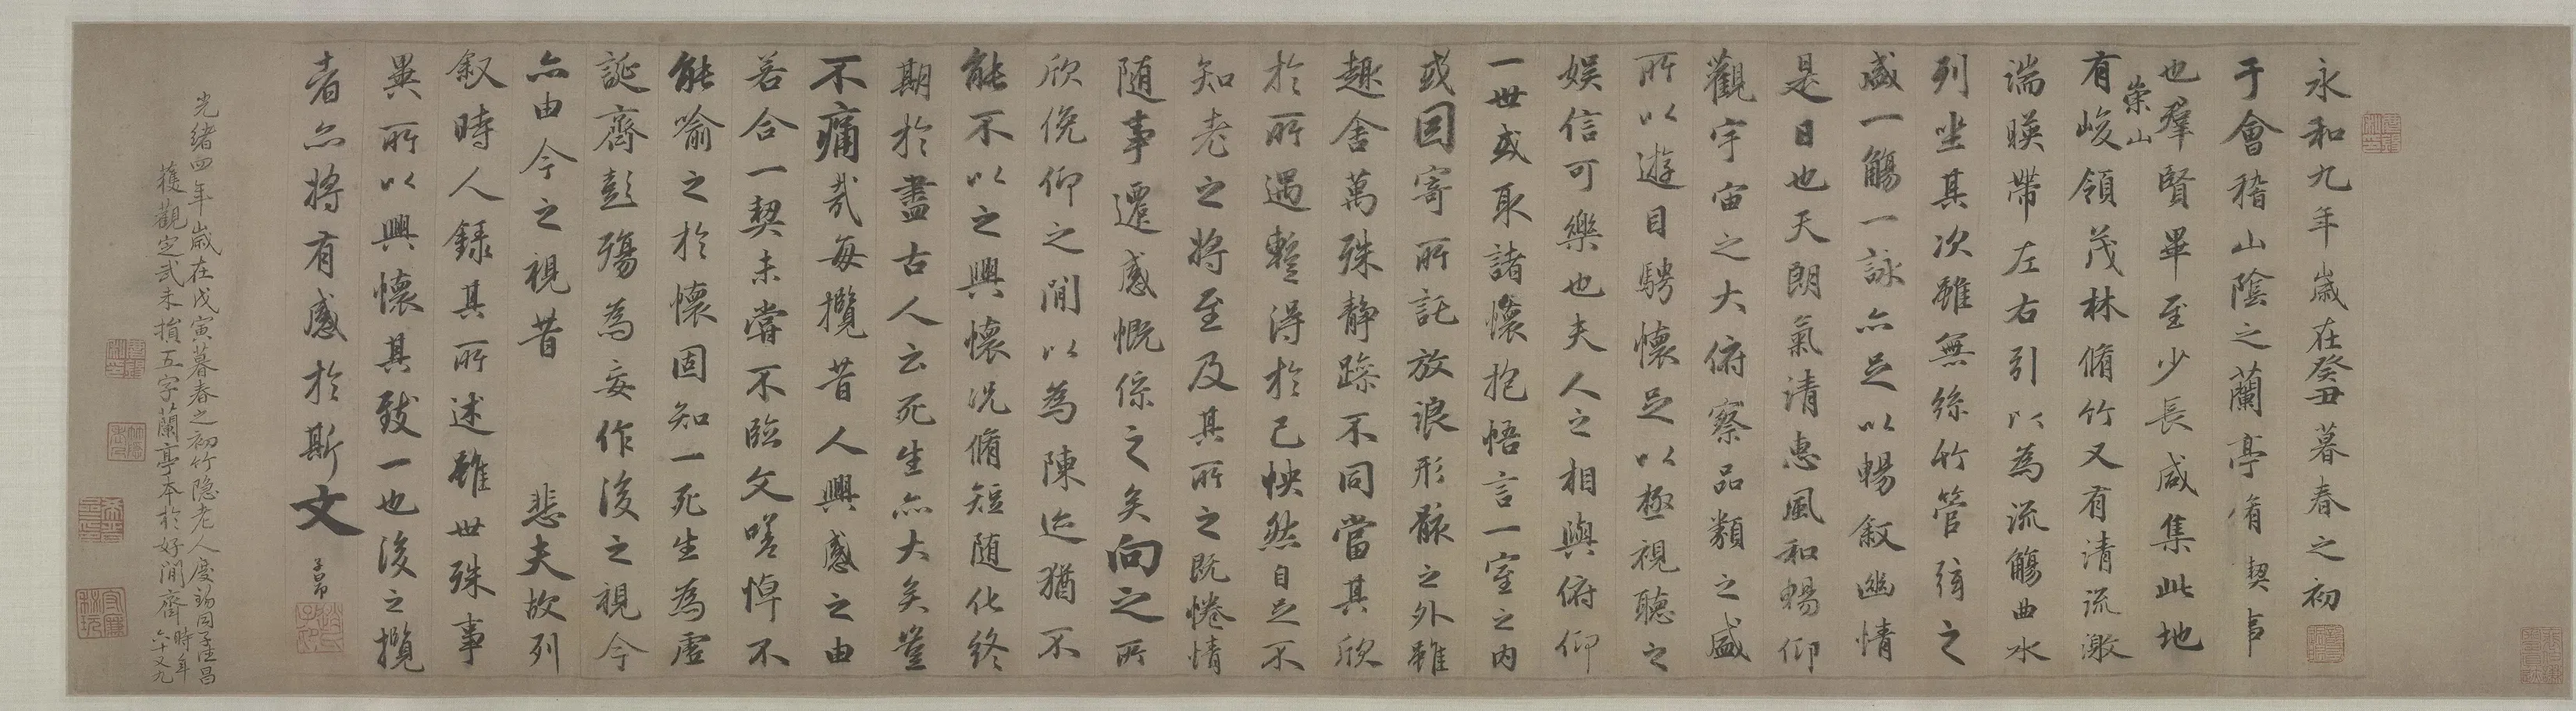 永和九年歲在癸丑暮春之初
于會稽山陰之蘭亭脩禊事
也羣賢畢至少長咸集此地
崇山
有峻領茂林脩竹又有清流激
湍暎帶左右引以為流觴曲水
列坐其次雖無絲竹管弦之
盛一觴一詠亦足以暢敘幽情
是日也天朗氣清惠風和暢仰
觀宇宙之大俯察品類之盛
所以遊目騁懷足以極視聽之
娛信可樂也夫人之相與俯仰
一世或取諸懷抱悟言一室之內
或因寄所託放浪形骸之外雖
趣舍萬殊靜躁不同當其欣
於所遇蹔得於己怏然自足不
知老之將至及其所之既惓情
隨事遷感慨係之矣向之所
欣俛仰之閒以為陳迹猶不
能不以之興懷況脩短隨化終
期於盡古人云死生亦大矣豈
不痛哉每攬昔人興感之由
若合一契未嘗不臨文嗟悼不
能喻之於懷固知一死生為虛
誕齊彭殤為妄作後之視今
亦由今之視昔 悲夫故列
敘時人錄其所述雖世殊事
異所以興懷其致一也後之攬
者亦將有感於斯文 子昂
光緒四年歲在戊寅暮春之初竹隱老人度錫同子汪昌
獲觀定武未損五字蘭亭本於好閒齋時年六十又九